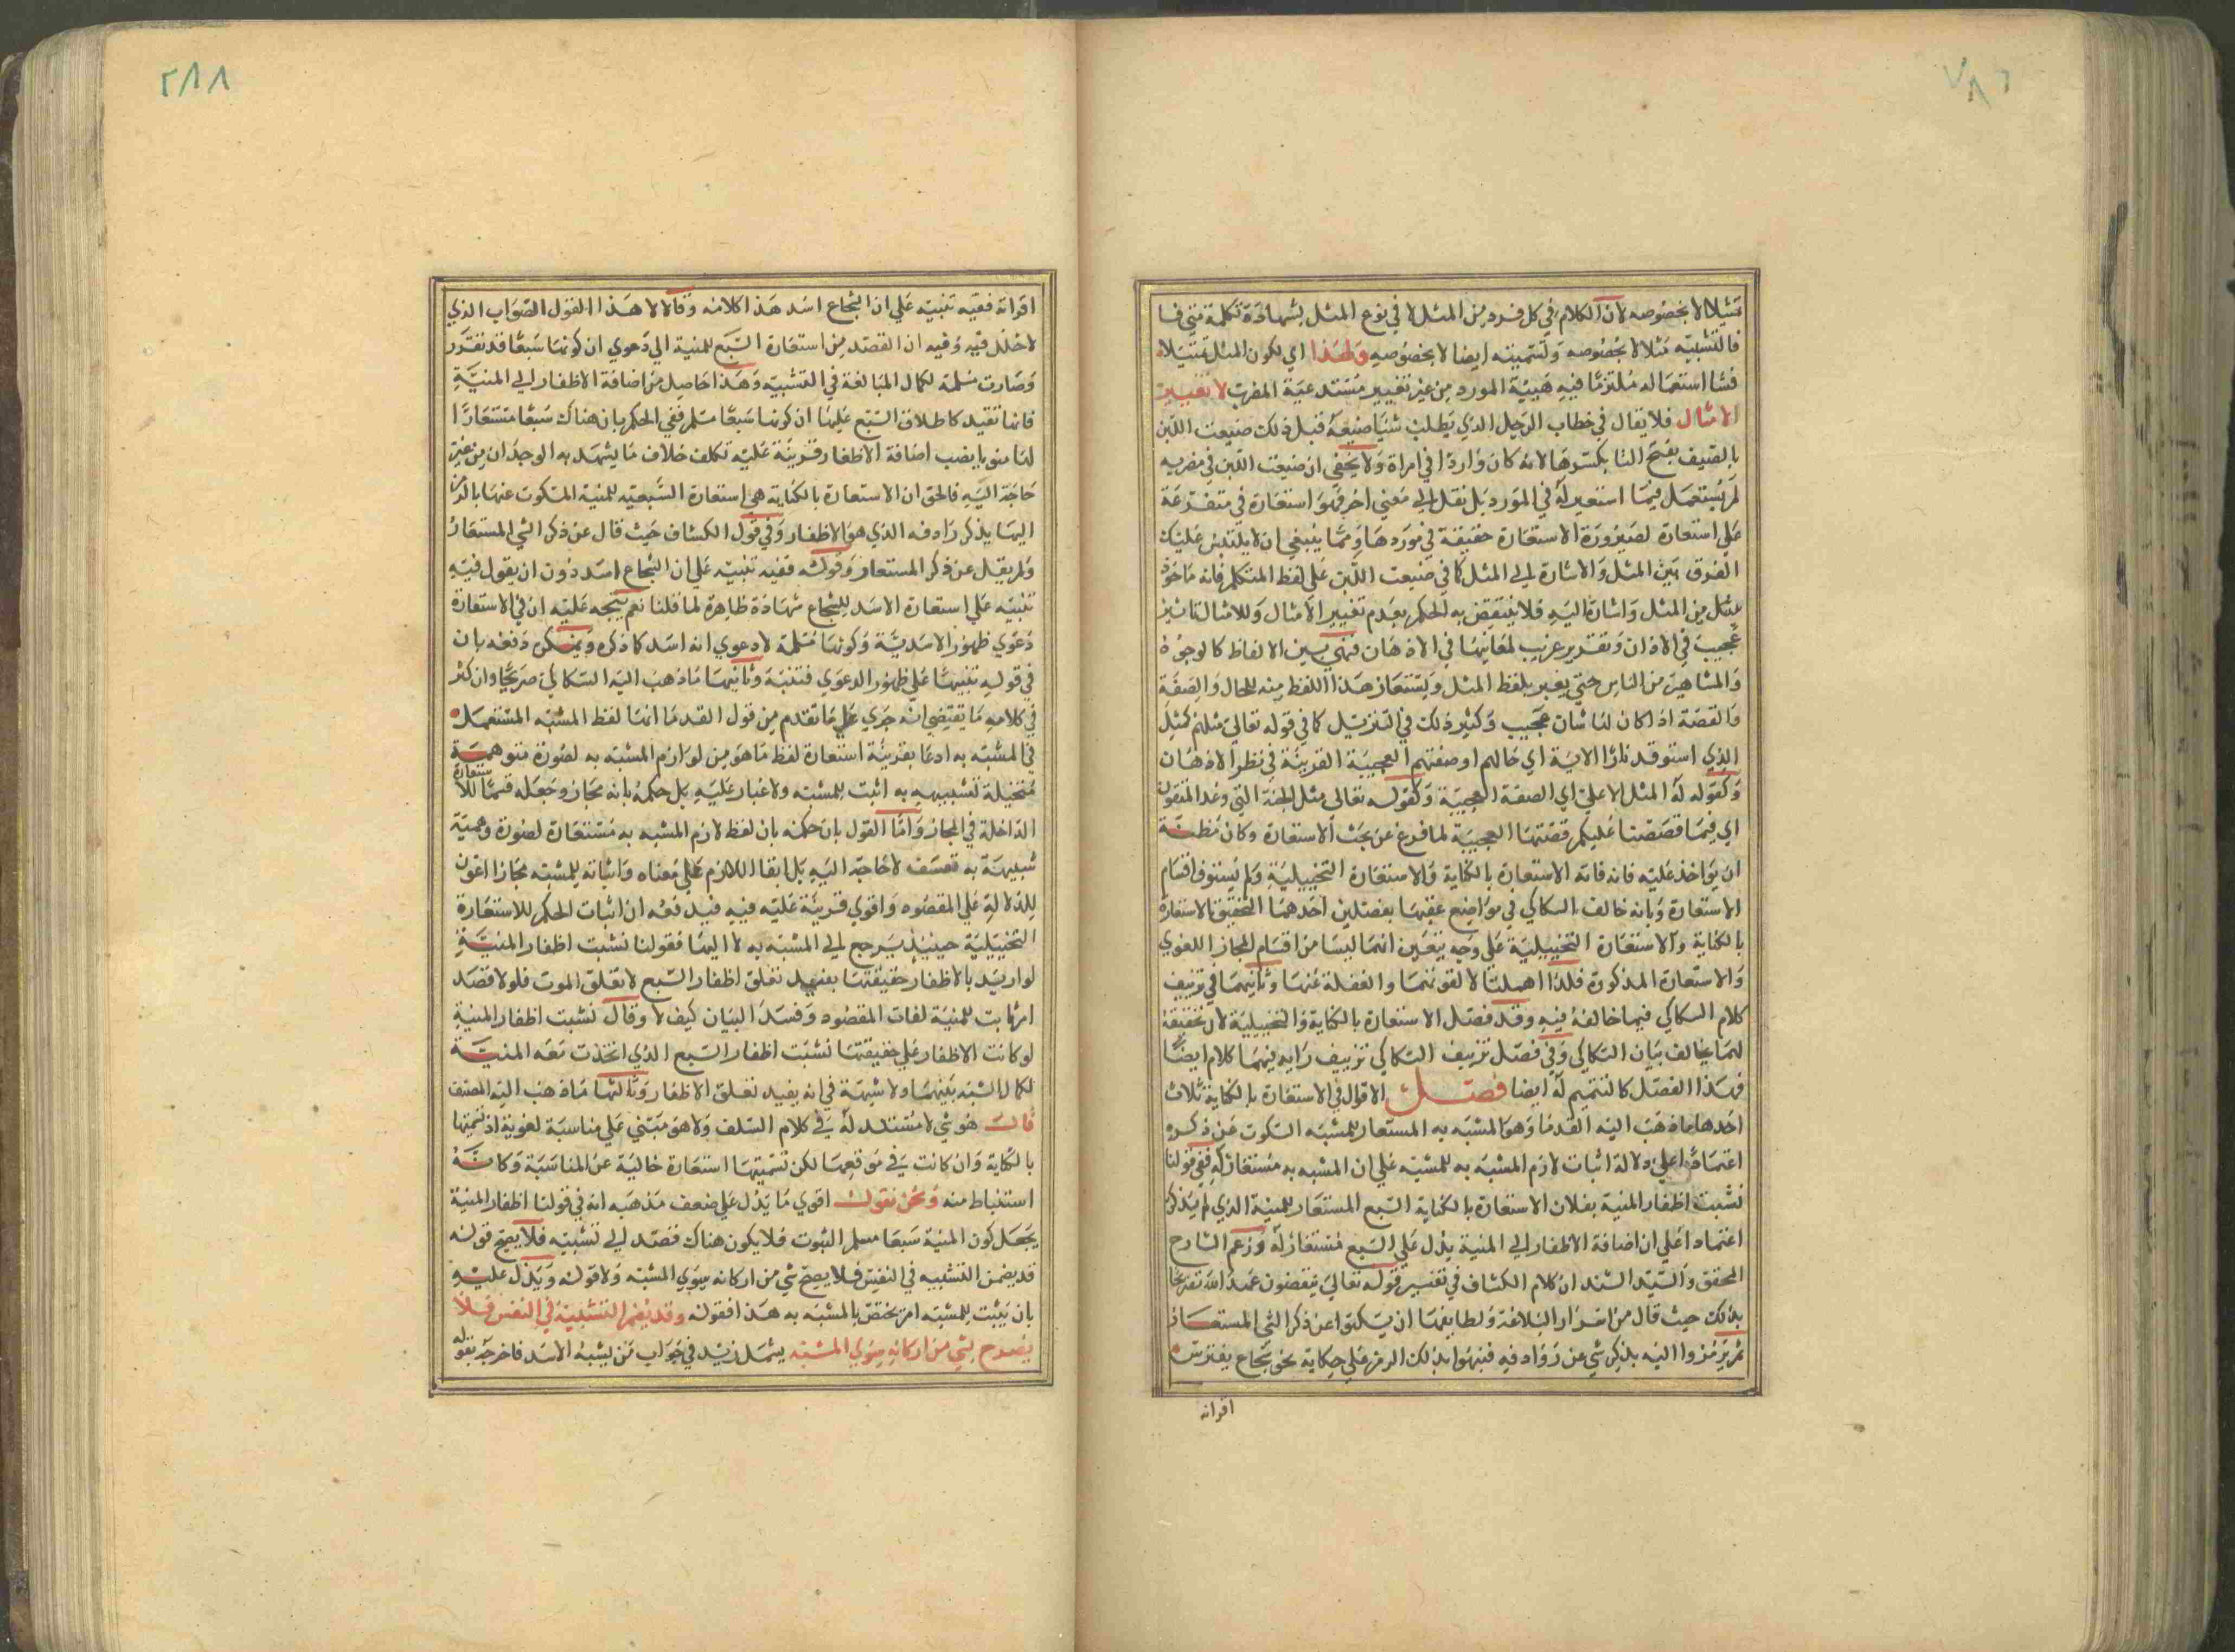 تمثيلا لا بخصوصه لان الكلام في كل فرد من المثل لا في نوع المثل بشهادة كلمة متى فشا
فالتشبيه مثلا لا بخصوصه وتسميته ايضا لا بخصوصه ولهذا اي لكون المثل تمثيلا
فشا استعماله ملتزما فيه هيئة المورد من غير تغيير مستدعية المضرب لا تغيير
الامثال فلا يقال في خطاب الرجل الذي يطلب شيئا ضيعه قبل ذلك ضيعت اللبن
بالصيف بفتح التا بكسرها لانه كان واردا في امراة ولا يخفى ان ضيعت اللبن في مضربه
لم يستعمل فيما استعير له في المورد بل نقل الى معنى اخر فهو استعارة في متفرعة
على استعارة لصيرورة الاستعارة حقيقة في موردها ومما ينبغي ان لا يلتبس عليك
الفرق بين المثل والاشارة الى المثل كما في ضيعت اللبن على لفظ المتكلم فانه ماخوذ
من المثل واشارة اليه فلا ينتقض به الحكم بعدم تغيير الامثال وللامثال تاثير
عجيب في الاذان وتقرير غريب لمعانيها في الاذهان فهي بين الالفاظ كالوجوه
والمشاهير من الناس حتى يعبر بلفظ المثل ويستعار هذا اللفظ منه للحال والصفة
والقصة اذا كان لها شان عجيب وكثير ذلك في التنزيل كما في قوله تعالى مثلهم كمثل
الذي استوقد نارا الاية اي حالهم او صفتهم العجيبة الغريبة في نظر الاذهان
وكقوله له المثل الاعلى اي الصفة العجيبة وكقوله تعالى مثل الجنة التي وعد المتقون
اي فيما قصصنا عليكم قصتها العجيبة لما فرغ عن بحث الاستعارة وكان مظنة
ان يواخذ عليه فانه فاته الاستعارة بالكناية والاستعارة التخييلية ولم يستوف اقسام
الاستعارة وبانه خالف السكاكي في مواضع عقبها بفصلين احدهما لتحقيق الاستعارة
بالكناية والاستعارة التخييلية على وجه يتعين انهما ليسا من اقسام المجاز اللغوي
والاستعارة المذكورة فلذا اهملتا لا لفوتهما والغفلة عنها وثانيهما في تزييف
كلام السكاكي فيما خالفه فيه وقد فصل الاستعارة بالكناية والتخييلية لان تحقيقه
لهما يخالف بيان السكاكي وفي فصل تزييف السكاكي تزييف رايه فيهما كلام ايضا
فهذا الفصل كالتتميم له ايضا فصل الاقوال في الاستعارة بالكناية ثلاث
احدها ما ذهب اليه القدما وهو المشبه به المستعار للمشبه السكوت عن ذكره
اعتمادا على دلالة اثبات لازم المشبه به للمشبه على ان المشبه به مستعار له ففي قولنا
نشبت اظفار المنية بفلان الاستعارة بالكناية السبع المستعار للمنية الذي لم يذكر
اعتمادا على ان اضافة الاظفار الى المنية يدل على السبع مستعار له وزعم الشارح
المحقق والسيد السند ان كلام الكشاف في تفسير قوله تعالى ينقضون عهد الله تصريحا
بذلك حيث قال من اسرار البلاغة ولطايفها ان يسكتوا عن ذكر الشي المستعار
ثم يرمزوا اليه بذكر شي عن روادفه فينبهوا بذلك الرمز على حكاية نحو شجاع يفترس
اقرانه
اقرانه ففيه تنبيه على ان الشجاع اسد هذا كلامه وقالا لا هذا القول الصواب الذي
لا خلل فيه وفيه ان القصد من استعارة السبع للمنية الى دعوى ان كونها سبعا قد تقرر
وصارت مسلمة لكمال المبالغة في التشبيه وهذا حاصل من اضافة الاظفار الى المنية
فانها تفيد كاطلاق السبع عليها ان كونها سبعا مسلم ففي الحكم بان هناك سبعا مستعارا
لها منويا بنصب اضافة الاظفار قرينة عليه تكلف خلاف ما يشهد به الوجدان من غير
حاجة اليه فالحق ان الاستعارة بالكناية هي استعارة السبعية للمنية المسكوت عنها بالرمز
اليها بذكر رادفه الذي هو الاظفار وفي قول الكشاف حيث قال عن ذكر الشي المستعار
ولم يقل عن ذكر المستعار وقوله ففيه تنبيه على ان الشجاع اسد دون ان يقول فيه
تنبيه على استعارة الاسد للشجاع شهادة ظاهرة لما قلنا نعم يتجه عليه ان في الاستعارة
دعوى ظهور الاسدية وكونها مسلمة لا دعوى انه اسد كما ذكره ويمكن دفعه بان
في قوله تنبيها على ظهور الدعوى فتنبه وثانيها ما ذهب اليه السكاكي صريحا وان كثر
في كلامه ما يقتضي انه جرى على ما تقدم من قول القدما انها لفظ المشبه المستعمل
في المشبه به ادعا بقرينة استعارة لفظ ما هو من لوازم المشبه به لصورة متوهمة
متخيلة تشبيهه به اثبت للمشبه ولا غبار عليه بل حكمه بانه مجاز وجعله قسما للاستعارة
الداخلة في المجاز واما القول بان حكمه بان لفظ لازم المشبه به مستعارة لصورة وهمية
شبيهة به تعسف لا حاجة اليه بل ابقا اللازم على معناه واثباته للمشبه مجازا اعون
للدلالة على المقصود واقوى قرينة عليه ففيه فيدفعه ان اثبات الحكم للاستعارة
التخييلية حينيذ يرجع الى المشبه به لا اليها فقولنا نشبت اظفار المنية
لو اريد بالاظفار حقيقتها يفيد تعلق اظفار السبع لا تعلق الموت فلو لا قصد
امر ثابت للمنية لفات المقصود وفسد البيان كيف لا وقال نشبت اظفار المنية
لو كانت الاظفار على حقيقتها نشبت اظفار السبع الذي اتخذت معه المنية
لكمال الشبه بينهما ولا شبهة في انه يفيد تعلق الاظفار وثالثها ما ذهب اليه المصنف
قالت هو شي لا مستند له في كلام السلف ولا هو مبتني على مناسبة لغوية اذ تسميتها
بالكناية وان كانت في موقعها لكن تسميتها استعارة خالية عن المناسبة وكانه
استنباط منه ونحن نقول اقوى ما يدل على ضعف مذهبه انه في قولنا اظفار المنية
يجعل كون المنية سبعا مسلم الثبوت فلا يكون هناك قصد الى تشبيه فلا يصح قوله
قد يضمن التشبيه في النفس فلا يصح شي من اركانه سوى المشبه ولا قوله ويدل عليه
بان يثبت للمشبه امر يختص بالمشبه به هذا فقوله وقد يضمر التشبيه في النفس فلا
يصرح بشي من اركانه سوى المشبه يشمل زيد في جواب من يشبه الاسد فاخرجه بقوله
٢٨٨